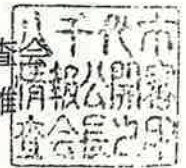 八千代市
情報公開審
査会長之印